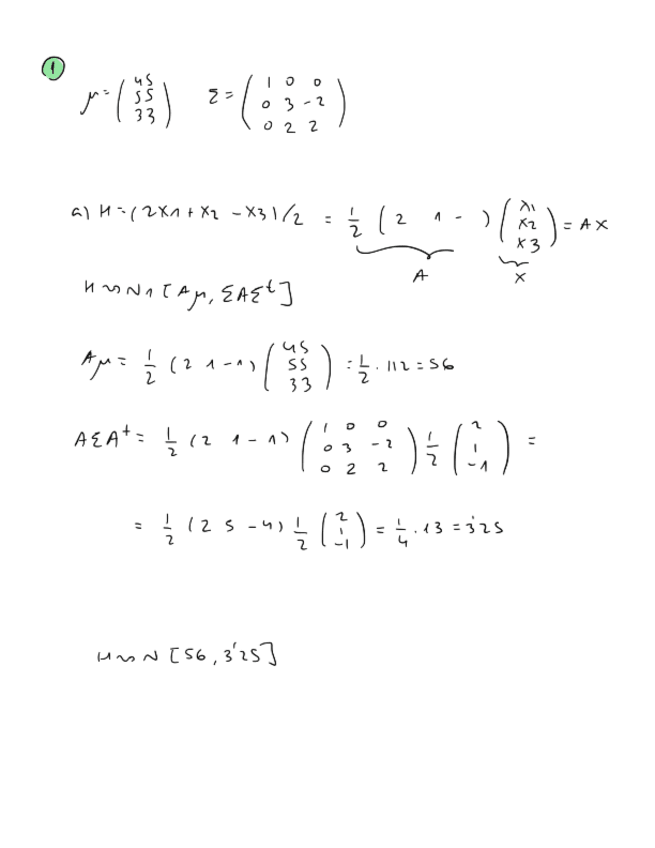 1
μ = ( 45 55 33 ) Σ = ( 1 0 0 0 3 -2 0 2 2 )
a) H = (2X1 + X2 - X3) / 2 = 1/2 ( 2 1 - ) ( X1 X2 X3 ) = AX
A X
H ~ N1 [ Aμ, ΣAΣ^t ]
Aμ = 1/2 (2 1 -1) ( 45 55 33 ) = 1/2 · 112 = 56
AΣA^t = 1/2 (2 1 -1) ( 1 0 0 0 3 -2 0 2 2 ) 1/2 ( 2 1 -1 ) =
= 1/2 (2 5 -4) 1/2 ( 2 1 -1 ) = 1/4 · 13 = 3'25
H ~ N [56, 3'25]